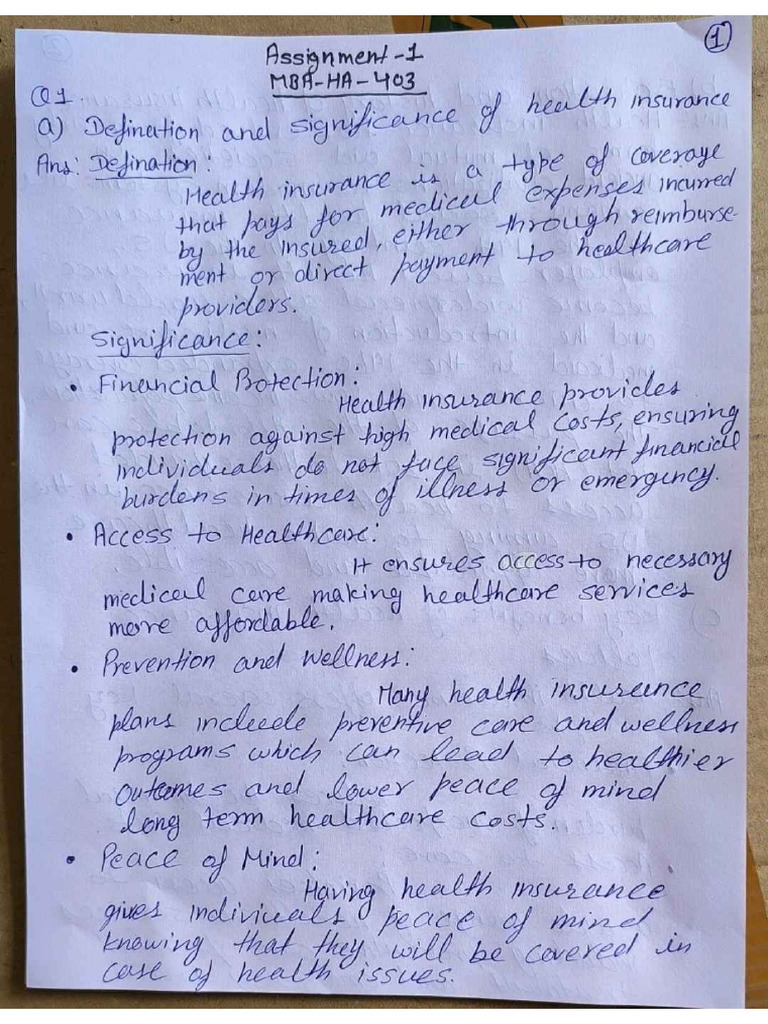 1
Assignment-1
MBA-HA-403
Q1.
a) Defination and significance of health insurance
Ans: Defination:
Health insurance is a type of coverage
that pays for medical expenses incurred
by the insured, either through reimburse-
ment or direct payment to healthcare
providers.
Significance:
• Financial Protection:
Health insurance provides
protection against high medical costs, ensuring
individuals do not face significant financial
burdens in times of illness or emergency.
• Access to Healthcare:
It ensures access to necessary
medical care making healthcare services
more affordable.
• Prevention and wellness:
Many health insurance
plans include preventive care and wellness
programs which can lead to healthier
outcomes and lower peace of mind
long term healthcare costs.
• Peace of Mind:
Having health insurance
gives indiviuals peace of mind
knowing that they will be covered in
case of health issues.